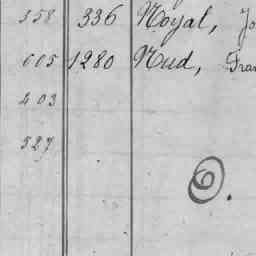 358 336 Noyal, Jo
605 1280 Nud, Fran
403
527
6.